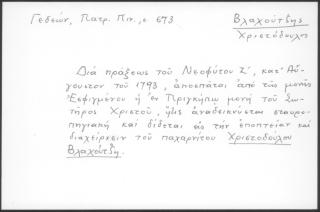 Γεδεών, Πατρ. Πιν., σ. 673
Βλαχούτζης
Χριστόδουλος
Διά πράξεως τοῦ Νεοφύτου Ζ', κατ' Αὔ-
γουστον τοῦ 1793, ἀποσπᾶται ἀπό τῆς μονῆς
Ἐσφιγμένου ἡ ἐν Πριγκήπῳ μονή τοῦ Σω-
τῆρος Χριστοῦ, ἥτις ἀναδεικνύεται σταυρο-
πηγιακή καί δίδεται εἰς τήν ἐποπτείαν καί
διαχείρισιν τοῦ παχαρνίτου Χριστοδούλου
Βλαχούτζη.